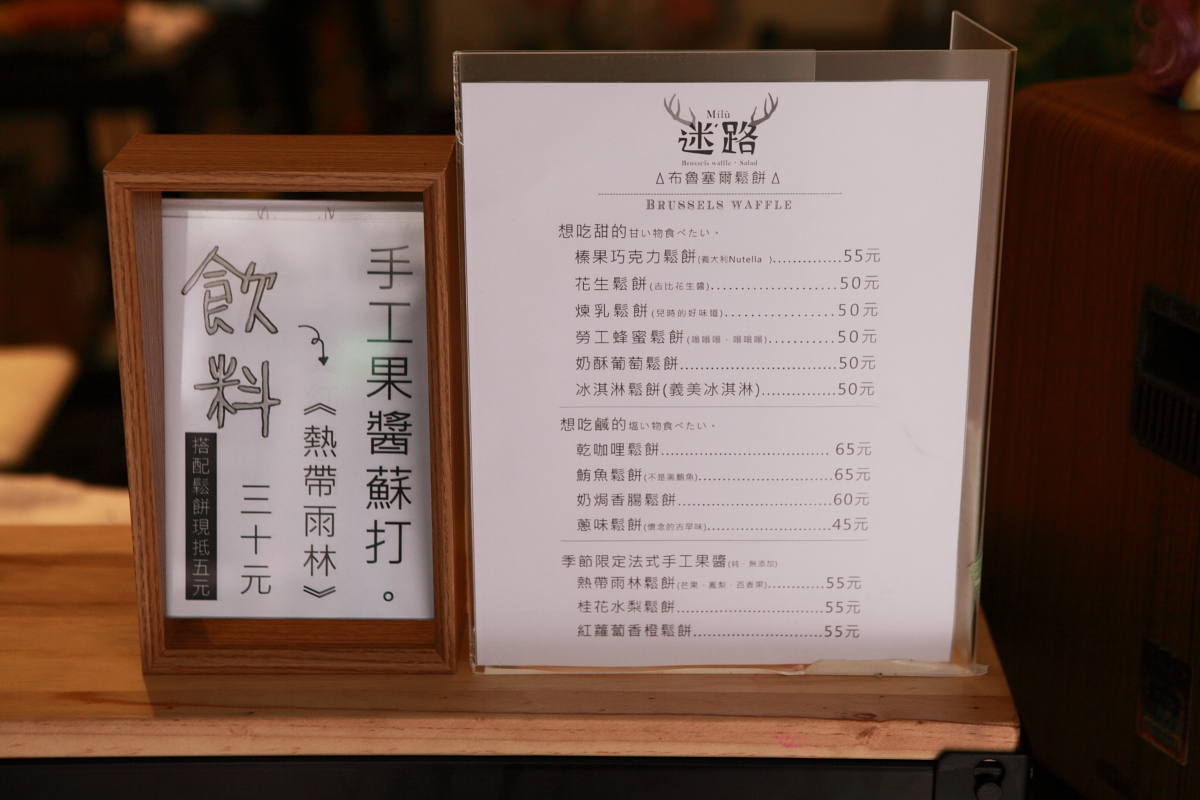 飲料
手工果醬蘇打。
《熱帶雨林》
三十元
搭配鬆餅現抵五元
Milù
迷路
Brussels waffle・Salad
∆布魯塞爾鬆餅∆
BRUSSELS WAFFLE
想吃甜的甘い物食べたい。
榛果巧克力鬆餅(義大利Nutella )..............55元
花生鬆餅(吉比花生醬)......................50元
煉乳鬆餅(兒時的好味道)...................50元
勞工蜂蜜鬆餅(嗡嗡嗡、嗡嗡嗡)...........50元
奶酥葡萄鬆餅..........................50元
冰淇淋鬆餅(義美冰淇淋)............50元
想吃鹹的塩い物食べたい。
乾咖哩鬆餅............................ 65元
鮪魚鬆餅(不是黑鮪魚)......................65元
奶焗香腸鬆餅..........................60元
蔥味鬆餅(懷念的古早味)....................45元
季節限定法式手工果醬(純、無添加)
熱帶雨林鬆餅(芒果、鳳梨、百香果)..........55元
桂花水梨鬆餅.........................55元
紅蘿蔔香橙鬆餅......................55元